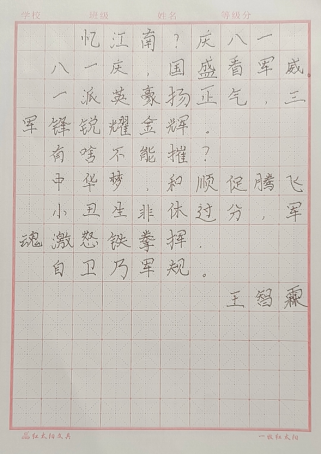 学校 班级 姓名 等级分
忆江南?庆八一
八一庆,国盛看军威
一派英豪扬正气,三
军锋锐耀金辉。
有啥不能摧?
中华梦,和顺促腾飞
小丑生非休过分,军
魂激怒铁拳挥,
自卫乃军规。
王智霖
红太阳文具 一版红太阳